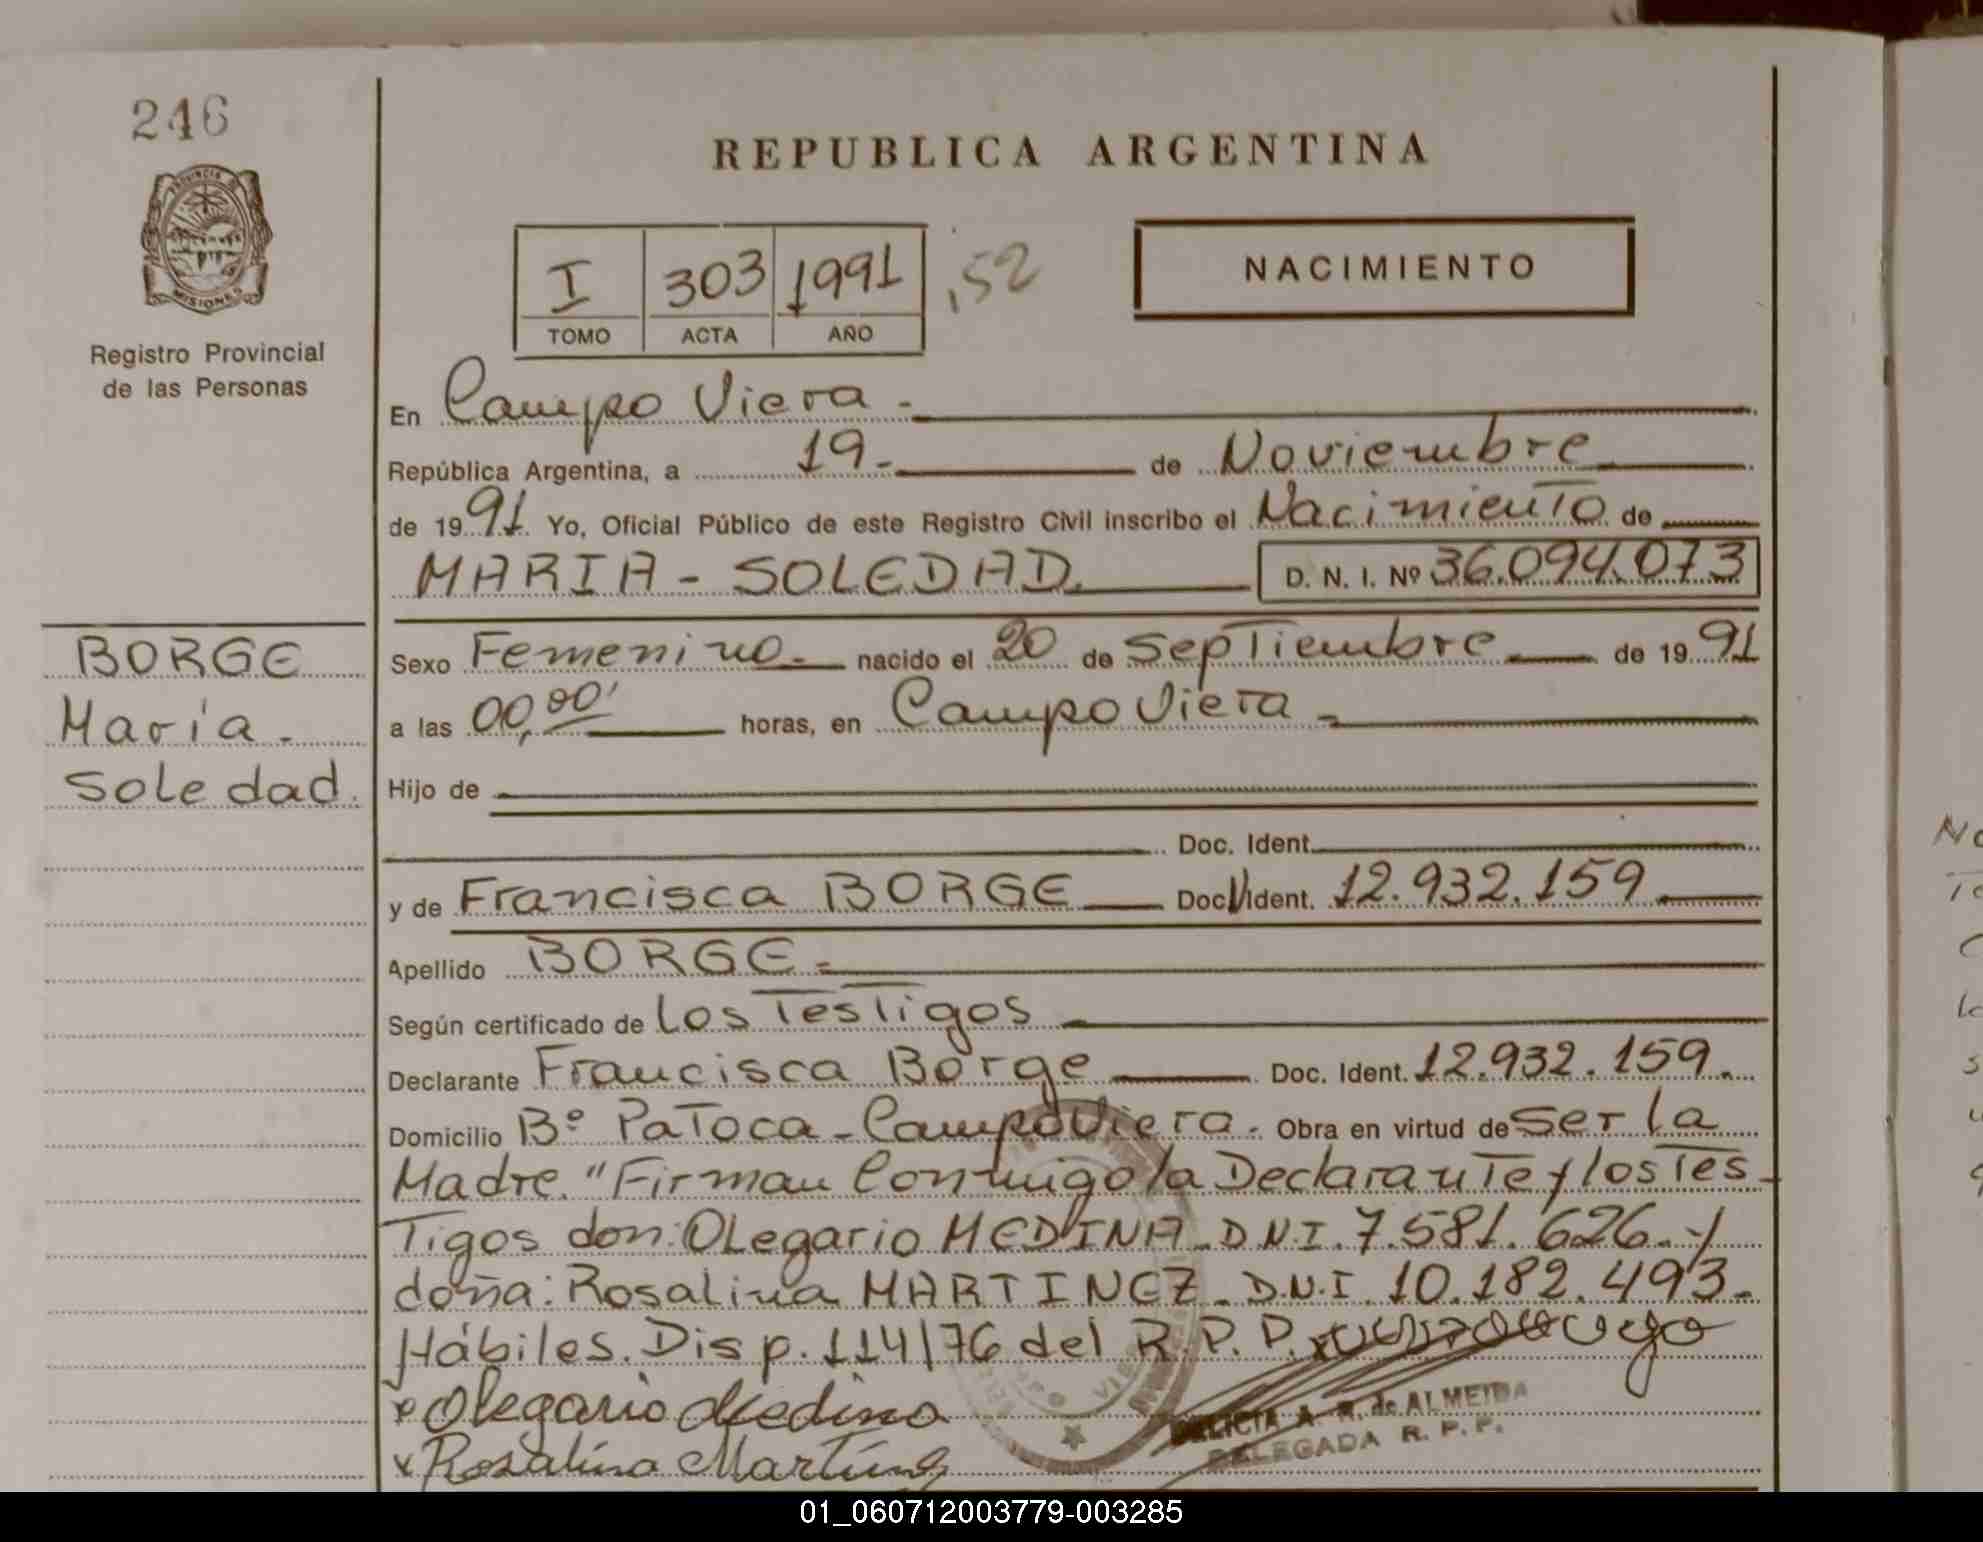 246
PROVINCIA DE
MISIONES
Registro Provincial
de las Personas
REPUBLICA ARGENTINA
I 303 1991 ,52
TOMO ACTA AÑO
NACIMIENTO
En Campo Viera -
República Argentina, a 19- de Noviembre
de 1991 Yo, Oficial Público de este Registro Civil inscribo el Nacimiento de
MARIA - SOLEDAD. D. N. I. Nº 36.094.073
BORGE
María -
Soledad.
Sexo Femenino - nacido el 20 de Septiembre de 1991
a las 00,00' horas, en Campo Viera -
Hijo de
Doc. Ident.
y de Francisca BORGE Doc. Ident. 12.932.159
Apellido BORGE -
Según certificado de los Testigos
Declarante Francisca Borge Doc. Ident. 12.932.159.
Domicilio Bº Patoca - Campo Viera. Obra en virtud de ser la
Madre. "Firman Conmigo la Declarante y los Tes-
Tigos don: OLegario MEDINA - D.N.I. 7.581.626 - y
doña: Rosalina MARTINEZ - D.N.I. 10.182.493 -
Hábiles. Disp. 114/76 del R.P.P.
x Olegario Medina
x Rosalina Martinez
DELICIA A. R. de ALMEIDA
DELEGADA R. P. P.
No
01_060712003779-003285